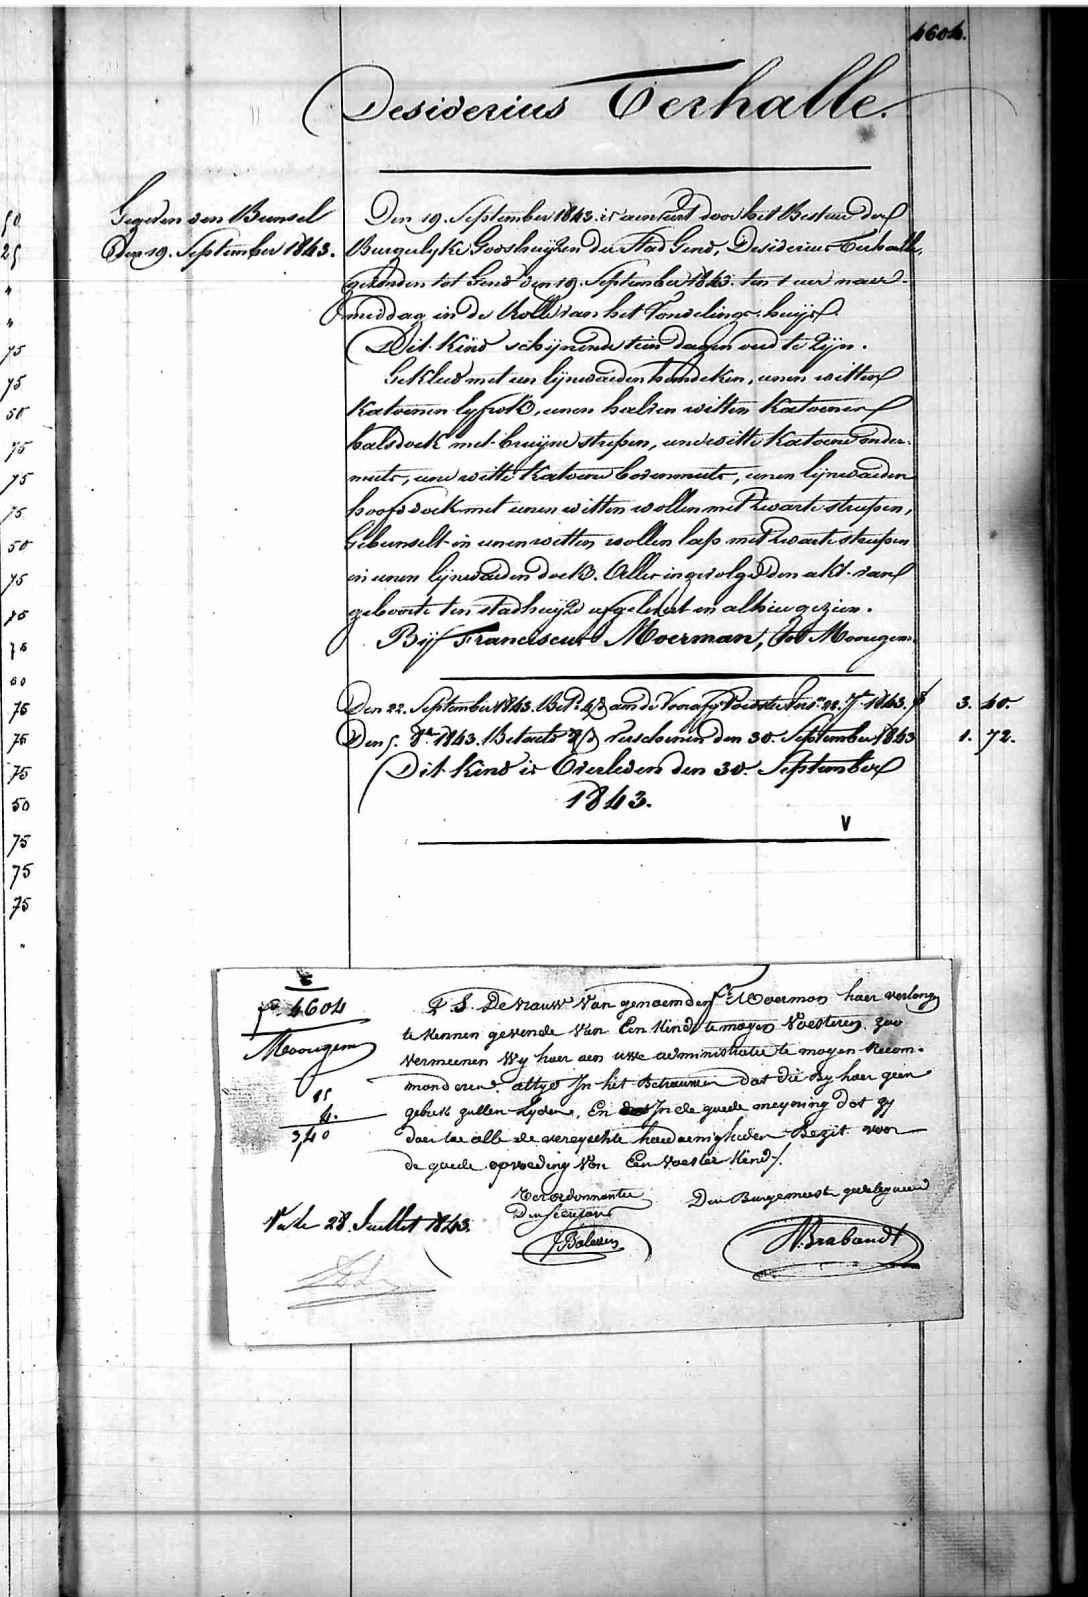 4604.
Desiderius Terhalle.
Gegeven den Bunsel
den 19. September 1843.
Den 19. September 1843. is aenveirt door het Bestuer der
Burgerlyke Godshuijzen der Stad Gend, Desiderius Terhalle,
gevonden tot Gend den 19. September 1843. ten 1 uer naer-
middag in de Rolle van het Vondelings-huijs
Dit Kind schijnende tien dagen oud te zijn.
Gekleed met een lijnwaeden hemdeken, eenen witten
Katoenen lyfrok, eenen halven witten Katoenen
halsdoek met bruijne strepen, eene witte Katoene onder-
muts, eene witte Katoene bovenmuts, eenen lijnwaeden
hoofddoek met eenen witten wollen met zwarte streepen,
Gebunselt in eenen witten wollen lap met zwarte streepen
en eenen lijnwaeden doek. Alles ingevolge den akt van
geboorte ten stadhuijze afgelevert en alhier gezien.
Bij Franciscus Moerman, tot Mooregem.
Den 22. September 1843. Bet. aen de Voorsz. Voedster 1843. f 3. 40.
Den 5. 8bre 1843. Betaelt verschenen den 30. September 1843 1. 72.
Dit Kind is Overleden den 30. September
1843.
V
50
25
"
"
75
75
50
75
75
75
50
75
75
75
50
75
75
75
50
75
75
75
"
fo 4604
Mooregem
15
4.
3,40
P. S. De vrauw van genoemden fr. Moerman haer verlang
te kennen gevende van Een Kindt te mogen Voesteren, zoo
vermeenen Wy haer aen uwe administratie te mogen Recom-
manderen. altyd In hét Betrauwen dat die By haer geen
gebrek zullen Lyden, En In de goede meyning dat zy
daer toe alle de vereyschte hoedaenigheden Bezit voor
de goede opvoeding van Een Voester Kind./.
Ter ordonnantie
Den Secretaris
Den Burgemeester gedelegueerd
Vu le 28. Juillet 1843.
Brabandt